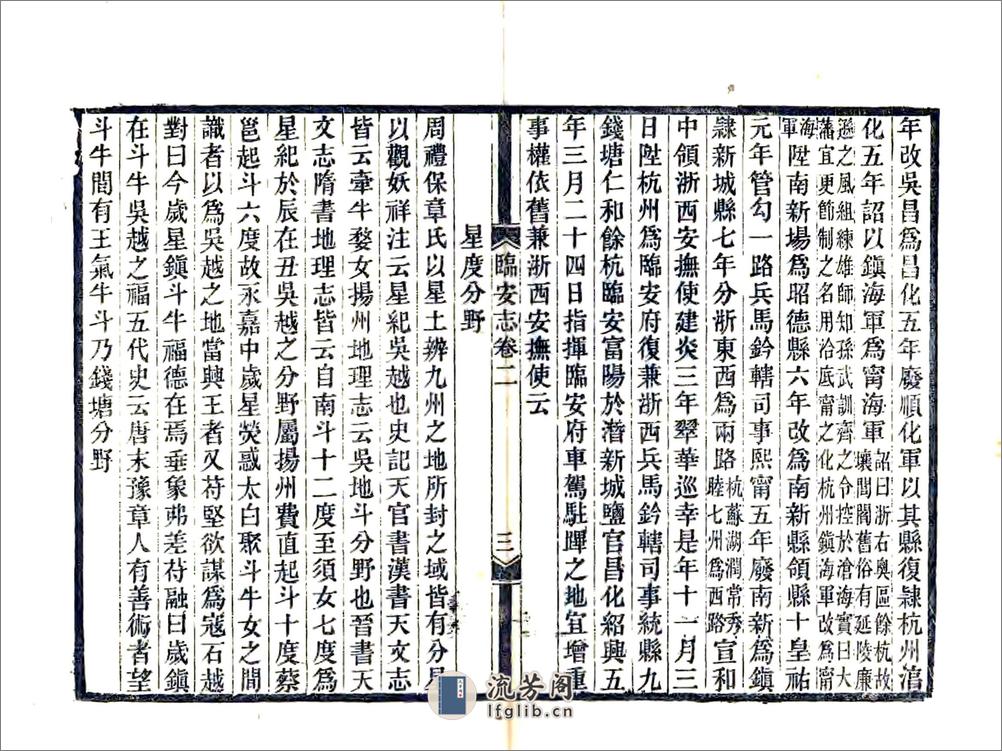 年改吳昌爲昌化五年廢順化軍以其縣復隷杭州淯
化五年詔以鎭海軍爲甯海軍詔曰浙右奧區餘杭故壤閭閻舊俗有延陵廉
遜之風組練雄師知孫武訓齊之令控於滄海實曰大藩宜更節制之名用洽底甯之化杭州鎭海軍改爲甯
海軍陞南新場爲昭德縣六年改爲南新縣領縣十皇祐
元年管勾一路兵馬鈐轄司事熙甯五年廢南新爲鎭
隷新城縣七年分浙東西爲兩路杭蘇湖潤常秀睦七州爲西路宣和
中領浙西安撫使建炎三年翠華巡幸是年十一月三
日陞杭州爲臨安府復兼浙西兵馬鈐轄司事統縣九
錢塘仁和餘杭臨安富陽於潛新城鹽官昌化紹興五
年三月二十四日指揮臨安府車駕駐蹕之地宜增重
事權依舊兼浙西安撫使云
臨安志卷二
三
星度分野
周禮保章氏以星土辨九州之地所封之域皆有分星
以觀妖祥注云星紀吳越也史記天官書漢書天文志
皆云牽牛婺女揚州地理志云吳地斗分野也晉書天
文志隋書地理志皆云自南斗十二度至須女七度爲
星紀於辰在丑吳越之分野屬揚州費直起斗十度蔡
邕起斗六度故永嘉中歲星熒惑太白聚斗牛女之間
識者以爲吳越之地當興王者又苻堅欲謀爲寇石越
對曰今歲星鎭斗牛福德在焉垂象弗差苻融曰歲鎭
在斗牛吳越之福五代史云唐末豫章人有善術者望
斗牛閒有王氣牛斗乃錢塘分野
流芳阁
lfglib.cn